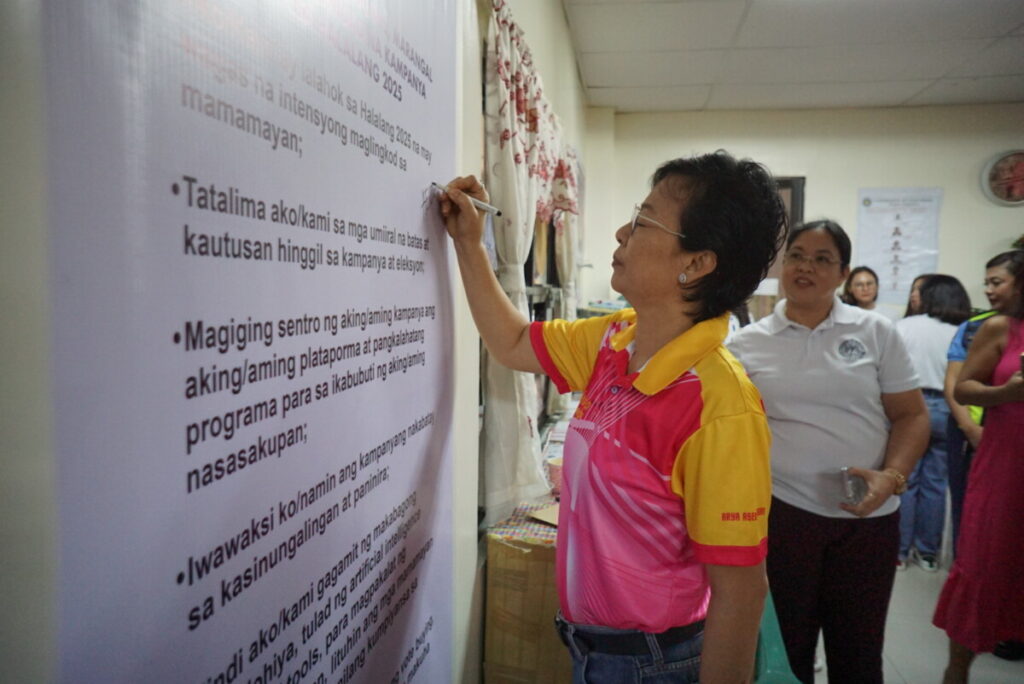 MARANGAL
KAMPANYA
HALALANG 2025
lalahok sa Halalang 2025 na may
na intensyong maglingkod sa
mamamayan;
•Tatalima ako/kami sa mga umiiral na batas at
kautusan hinggil sa kampanya at eleksyon;
•Magiging sentro ng aking/aming kampanya ang
aking/aming plataporma at pangkalahatang
programa para sa ikabubuti ng aking/aming
nasasakupan;
•Iwawaksi ko/namin ang kampanyang nakabatay
sa kasinungalingan at paninira;
ndi ako/kami gagamit ng makabagong
lohiya, tulad ng artificial intelligence
tools, para magpakalat ng
lituhin ang mga mamamayan
nilang kumpiyansa sa
vote buying
makuha
ARYA